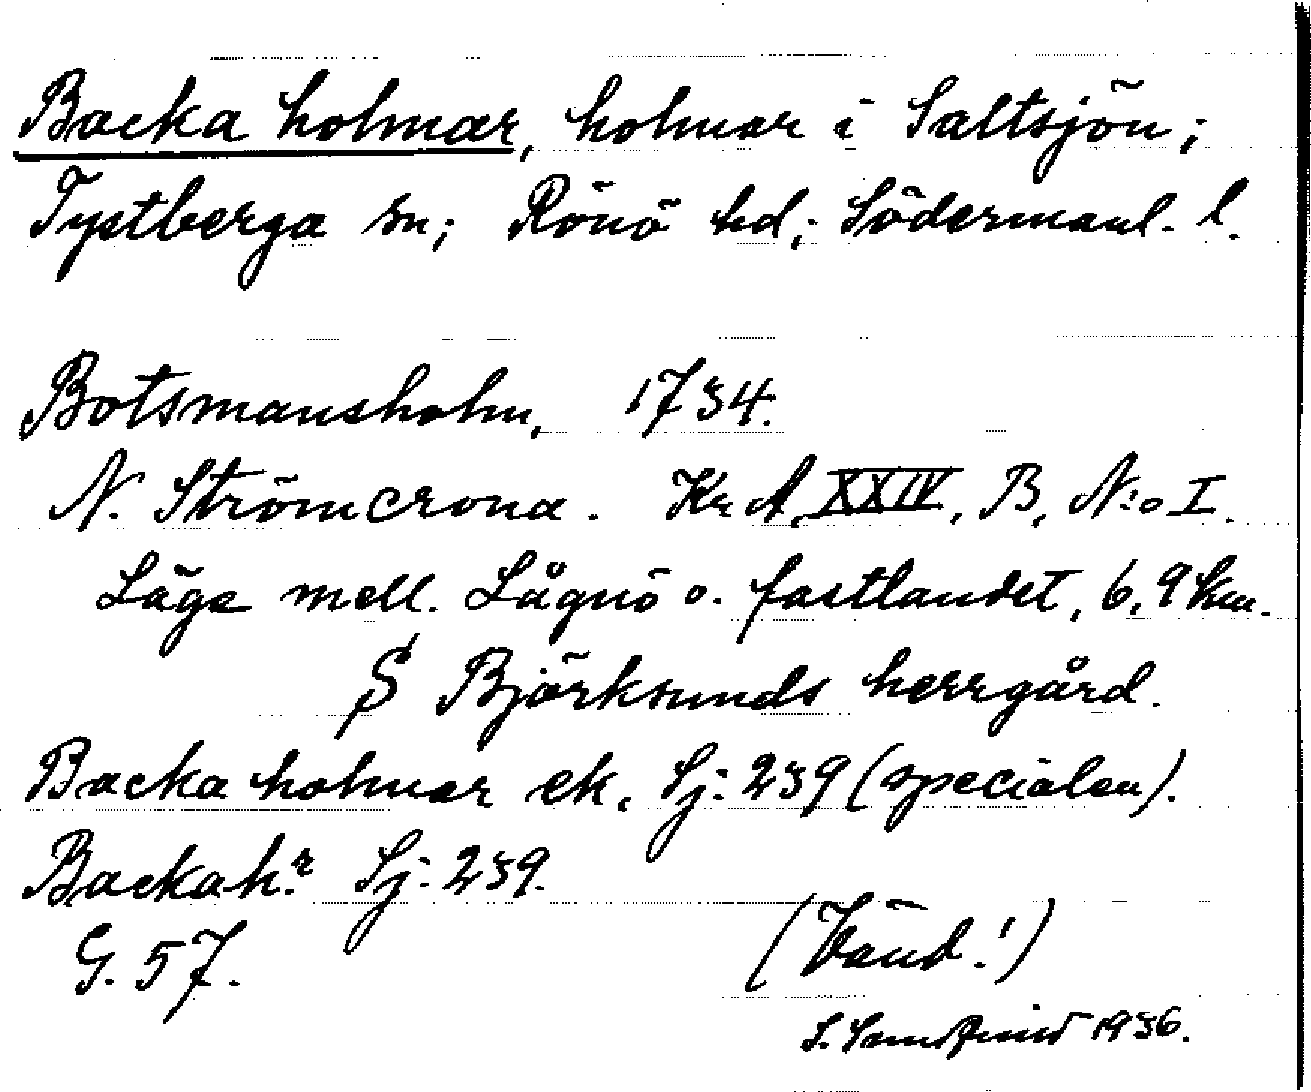 Backa holmar, holmar i Saltsjön;
Tystberga sn; Rönö hd; Södermanl. l.
Botsmansholm, 1734.
N. Strömcrona. Kr A, XXIV, B, N:o I.
Läge mell. Långö o. fastlandet, 6,9 km.
S Björksunds herrgård.
Backa holmar ek. Sj: 239 (specialen).
Backah:r Sj: 239.
G. 57.
(Vänd!)
S. 1936.